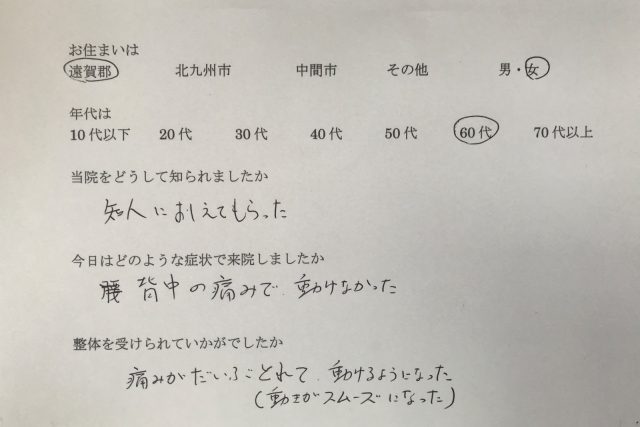 お住まいは
遠賀郡 北九州市 中間市 その他 男・女
年代は
10代以下 20代 30代 40代 50代 60代 70代以上
当院をどうして知られましたか
知人におしえてもらった
今日はどのような症状で来院しましたか
腰 背中の痛みで、動けなかった
整体を受けられていかがでしたか
痛みがだいぶとれて、動けるようになった
(動きがスムーズになった)